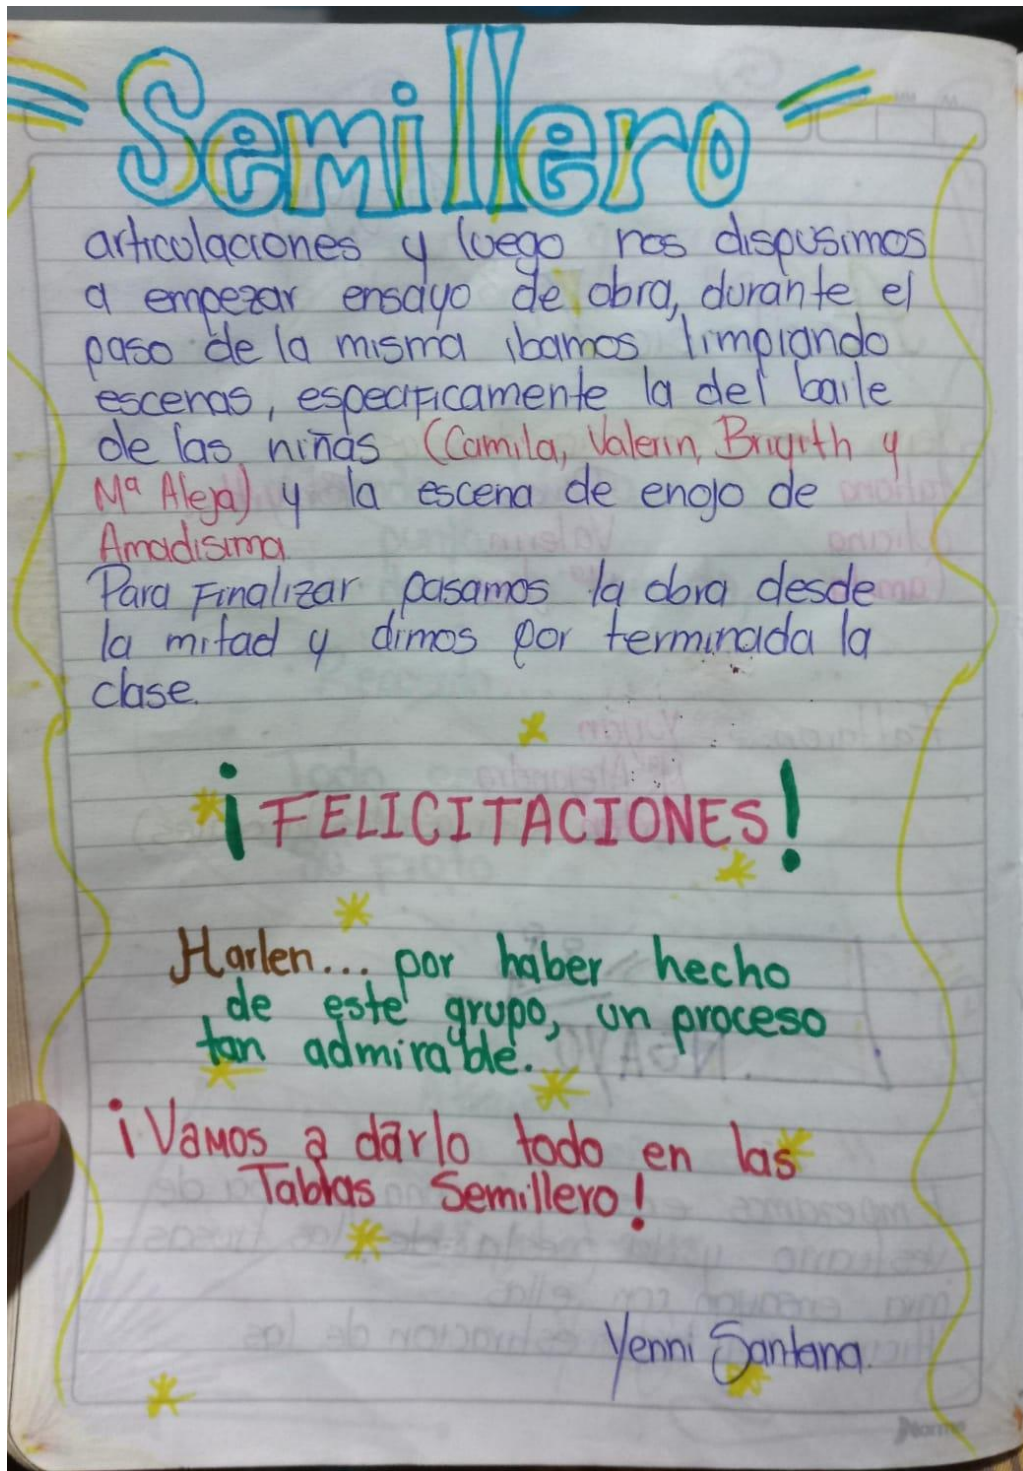 Semillero
articulaciones y luego nos dispusimos
a empezar ensayo de obra, durante el
paso de la misma ibamos limpiando
escenas, especificamente la del baile
de las niñas (Camila, Valerin, Brigith y
Mª Aleja) y la escena de enojo de
Amadisima
Para Finalizar pasamos la obra desde
la mitad y dimos por terminada la
clase.
¡FELICITACIONES!
Harlen... por haber hecho
de este grupo, un proceso
tan admirable.
¡Vamos a darlo todo en las
Tablas Semillero!
Yenni Santana.
Norma